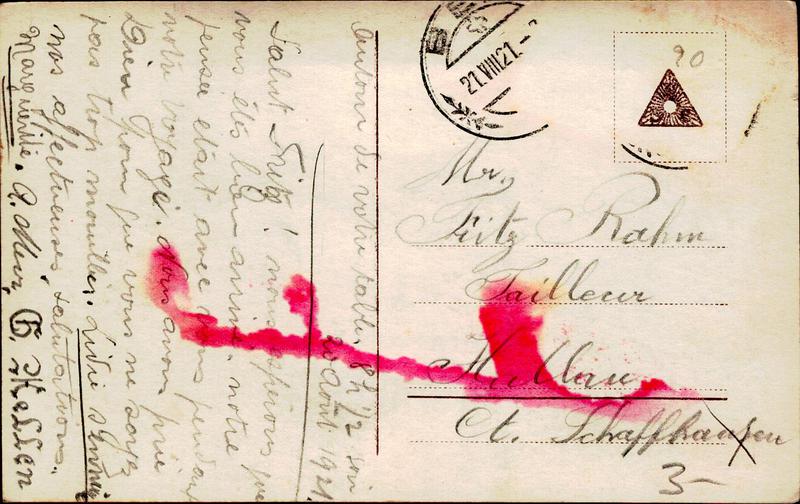 Autour de votre table. 8h 1/2 soir
20 Août 1921.
Salut Fritz! nous espérons que
vous êtes bien arrivé. notre
pensée était avec vous pendant
votre voyage. Nous avons prié
Dieu pour que vous ne soyez
pas trop mouillés. Lidie s'ennuie
nos affectueuses salutations.
Marguerite.
21.VIII.21.
90
Mr.
Fritz Rahm
Tailleur
Hallau
Ct. Schaffhausen
3-